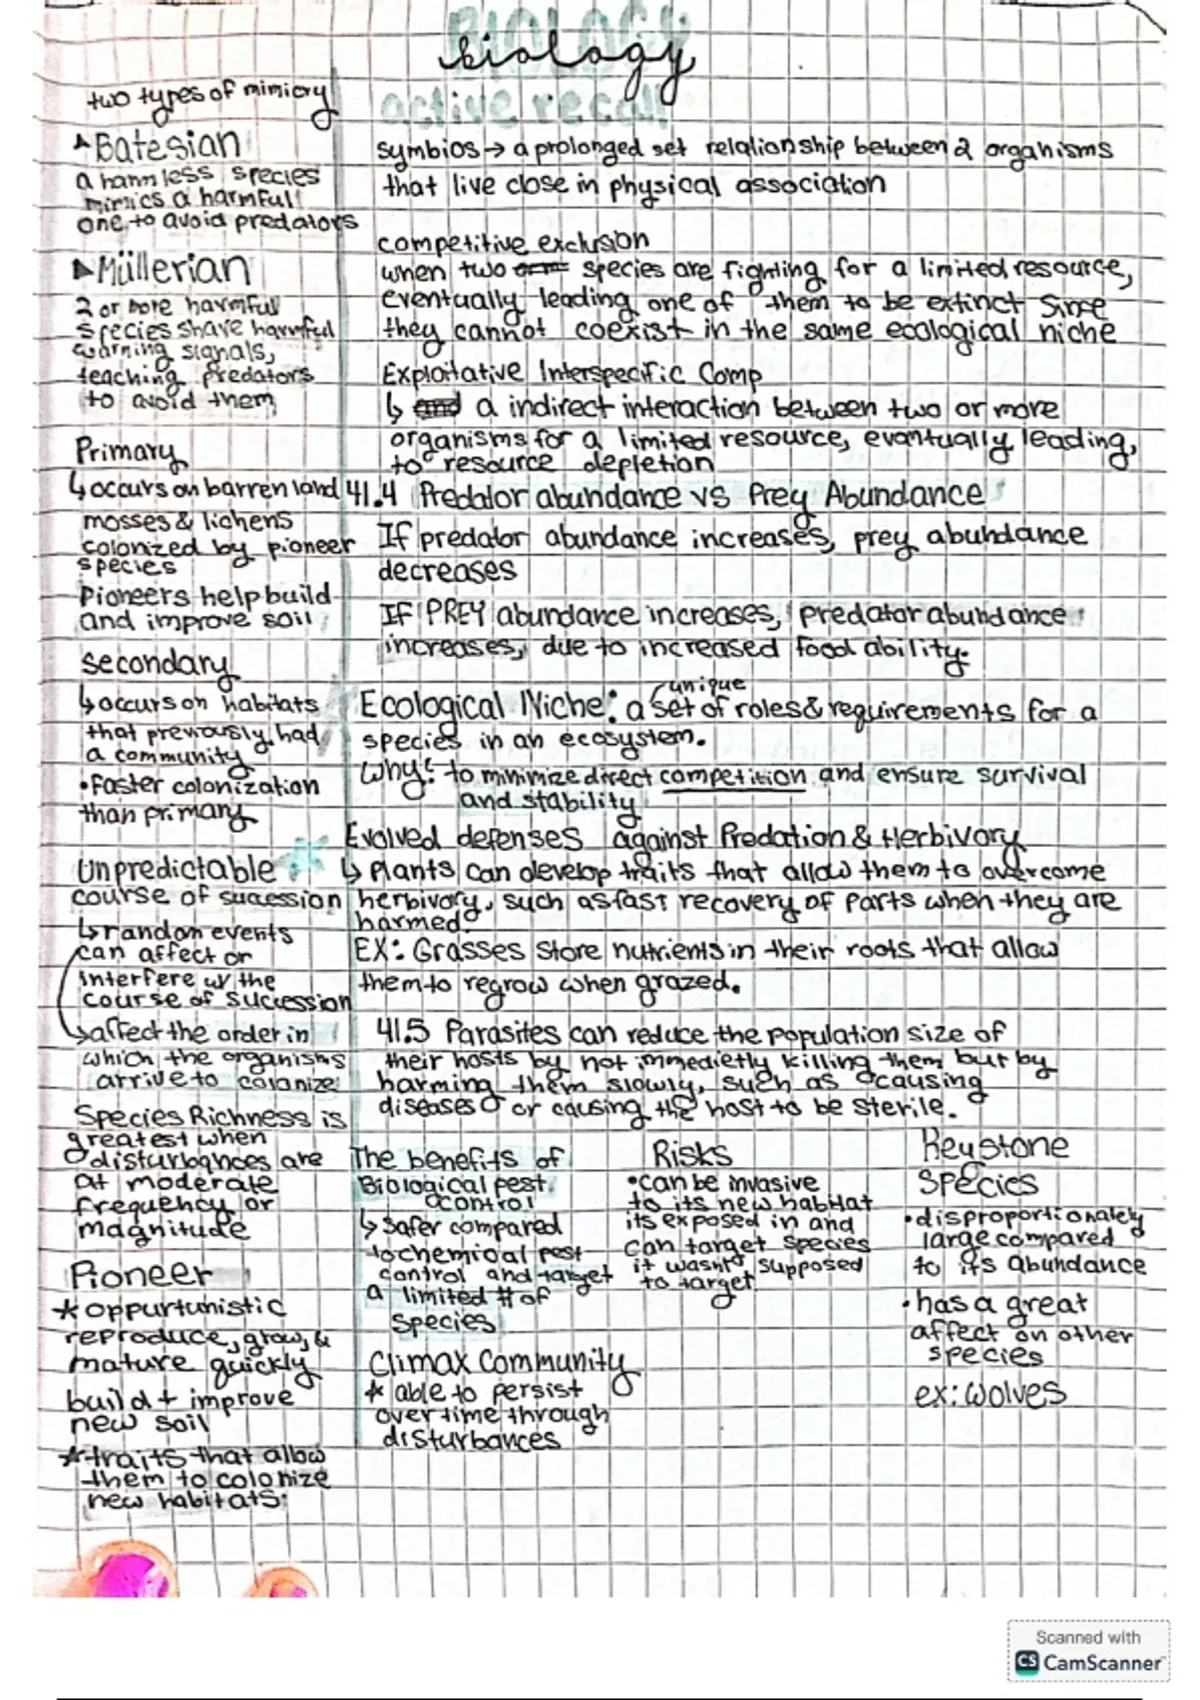 BIOLOGY
biology
active recall
two types of mimicry
Batesian
a harmless species
mimics a harmful
one to avoid predators
Müllerian
2 or more harmful
species share harmful
warning signals,
teaching predators
to avoid them
Primary
↳ occurs on barren land
mosses & lichens
colonized by pioneer
species
Pioneers help build
and improve soil
secondary
↳ occurs on habitats
that previously had
a community
• faster colonization
than primary
Unpredictable
course of sucession
↳ random events
can affect or
interfere w/ the
course of succession
↳ affect the order in
which the organisms
arrive to colonize
Species Richness is
greatest when
disturbances are
at moderate
frequency or
magnitude
Pioneer
* oppurtunistic
reproduce, grow, &
mature quickly
build + improve
new soil
* traits that allow
them to colonize
new habitats.
symbios → a prolonged set relationship between 2 organisms
that live close in physical association
competitive exclusion
when two species are fighting for a limited resource,
eventually leading one of them to be extinct since
they cannot coexist in the same ecological niche
Exploitative Interspecific Comp
↳ a indirect interaction between two or more
organisms for a limited resource, eventually leading,
to resource depletion
41.4 Predator abundance vs Prey Abundance
If predator abundance increases, prey abundance
decreases
If PREY abundance increases, predator abundance
increases, due to increased food ability.
Ecological Niche: a unique set of roles & requirements for a
species in an ecosystem.
Why? to minimize direct competition and ensure survival
and stability
Evolved defenses against Predation & Herbivory
↳ Plants can develop traits that allow them to overcome
herbivory, such as fast recovery of parts when they are
harmed.
EX: Grasses store nutrients in their roots that allow
them to regrow when grazed.
41.5 Parasites can reduce the population size of
their hosts by not immedietly killing them but by
harming them slowly, such as causing
diseases or causing the host to be sterile.
The benefits of
Biological pest
control
↳ Safer compared
to chemical pest
control and target
a limited # of
species
Risks
• can be invasive
to its new habitat
its exposed in and
can target species
it wasnt supposed
to target
Keystone
species
• disproportionately
large compared
to its abundance
• has a great
affect on other
species
ex: wolves
Climax Community
* able to persist
over time through
disturbances
Scanned with
CS CamScanner